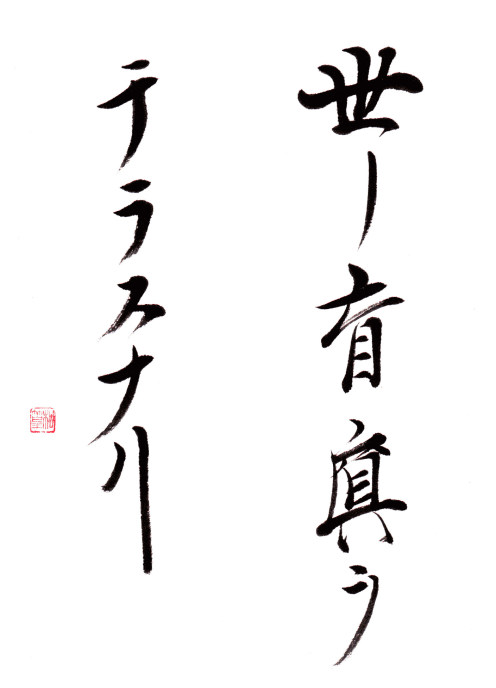 世ノ盲冥ヲ
テラスナリ